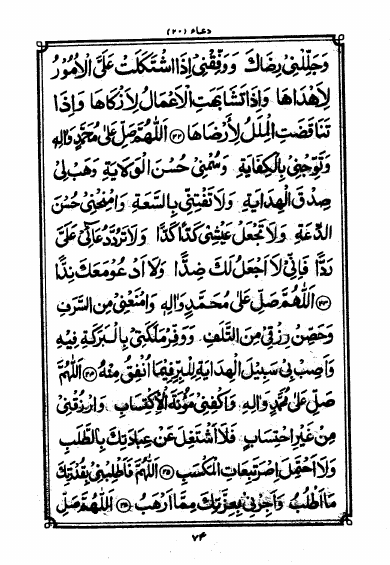 دعاء (٢٠)
وَجَلِّلْنِي رِضَاكَ وَوَفِّقْنِي إِذَا اشْتَكَلَتْ عَلَيَّ الْأُمُورُ
لِأَهْدَاهَا وَإِذَا تَشَابَهَتِ الْأَعْمَالُ لِأَزْكَاهَا وَإِذَا
تَنَاقَضَتِ الْمِلَلُ لِأَرْضَاهَا (٢٢) اَللّٰهُمَّ صَلِّ عَلىٰ مُحَمَّدٍ وَاٰلِهِ
وَتَوِّجْنِي بِالْكِفَايَةِ وَسُمْنِي حُسْنَ الْوِلَايَةِ وَهَبْ لِي
صِدْقَ الْهِدَايَةِ وَلَا تَفْتِنِّي بِالسَّعَةِ وَامْنِحْنِي حُسْنَ
الدَّعَةِ وَلَا تَجْعَلْ عَيْشِي كَدًّا كَدًّا وَلَا تَرُدَّ دُعَائِي عَلَيَّ
رَدًّا فَإِنِّي لَا أَجْعَلُ لَكَ ضِدًّا وَلَا أَدْعُو مَعَكَ نِدًّا
(٢٣) اَللّٰهُمَّ صَلِّ عَلىٰ مُحَمَّدٍ وَاٰلِهِ وَامْنَعْنِي مِنَ السَّرَفِ
وَحَصِّنْ رِزْقِي مِنَ التَّلَفِ وَوَفِّرْ مَلَكَتِي بِالْبَرَكَةِ فِيهِ
وَأَصِبْ بِي سَبِيلَ الْهِدَايَةِ لِلْبِرِّ فِيمَا أُنْفِقُ مِنْهُ (٢٤) اَللّٰهُمَّ
صَلِّ عَلىٰ مُحَمَّدٍ وَاٰلِهِ وَاكْفِنِي مَؤُنَةَ الْاِكْتِسَابِ وَارْزُقْنِي
مِنْ غَيْرِ احْتِسَابٍ فَلَا أَشْتَغِلَ عَنْ عِبَادَتِكَ بِالطَّلَبِ
وَلَا أَحْتَمِلَ إِصْرَ تَبِعَاتِ الْمَكْسَبِ (٢٥) اَللّٰهُمَّ فَأَطْلِبْنِي بِقُدْرَتِكَ
مَا أَطْلُبُ وَأَجِرْنِي بِعِزَّتِكَ مِمَّا أَرْهَبُ (٢٦) اَللّٰهُمَّ صَلِّ
٧٤